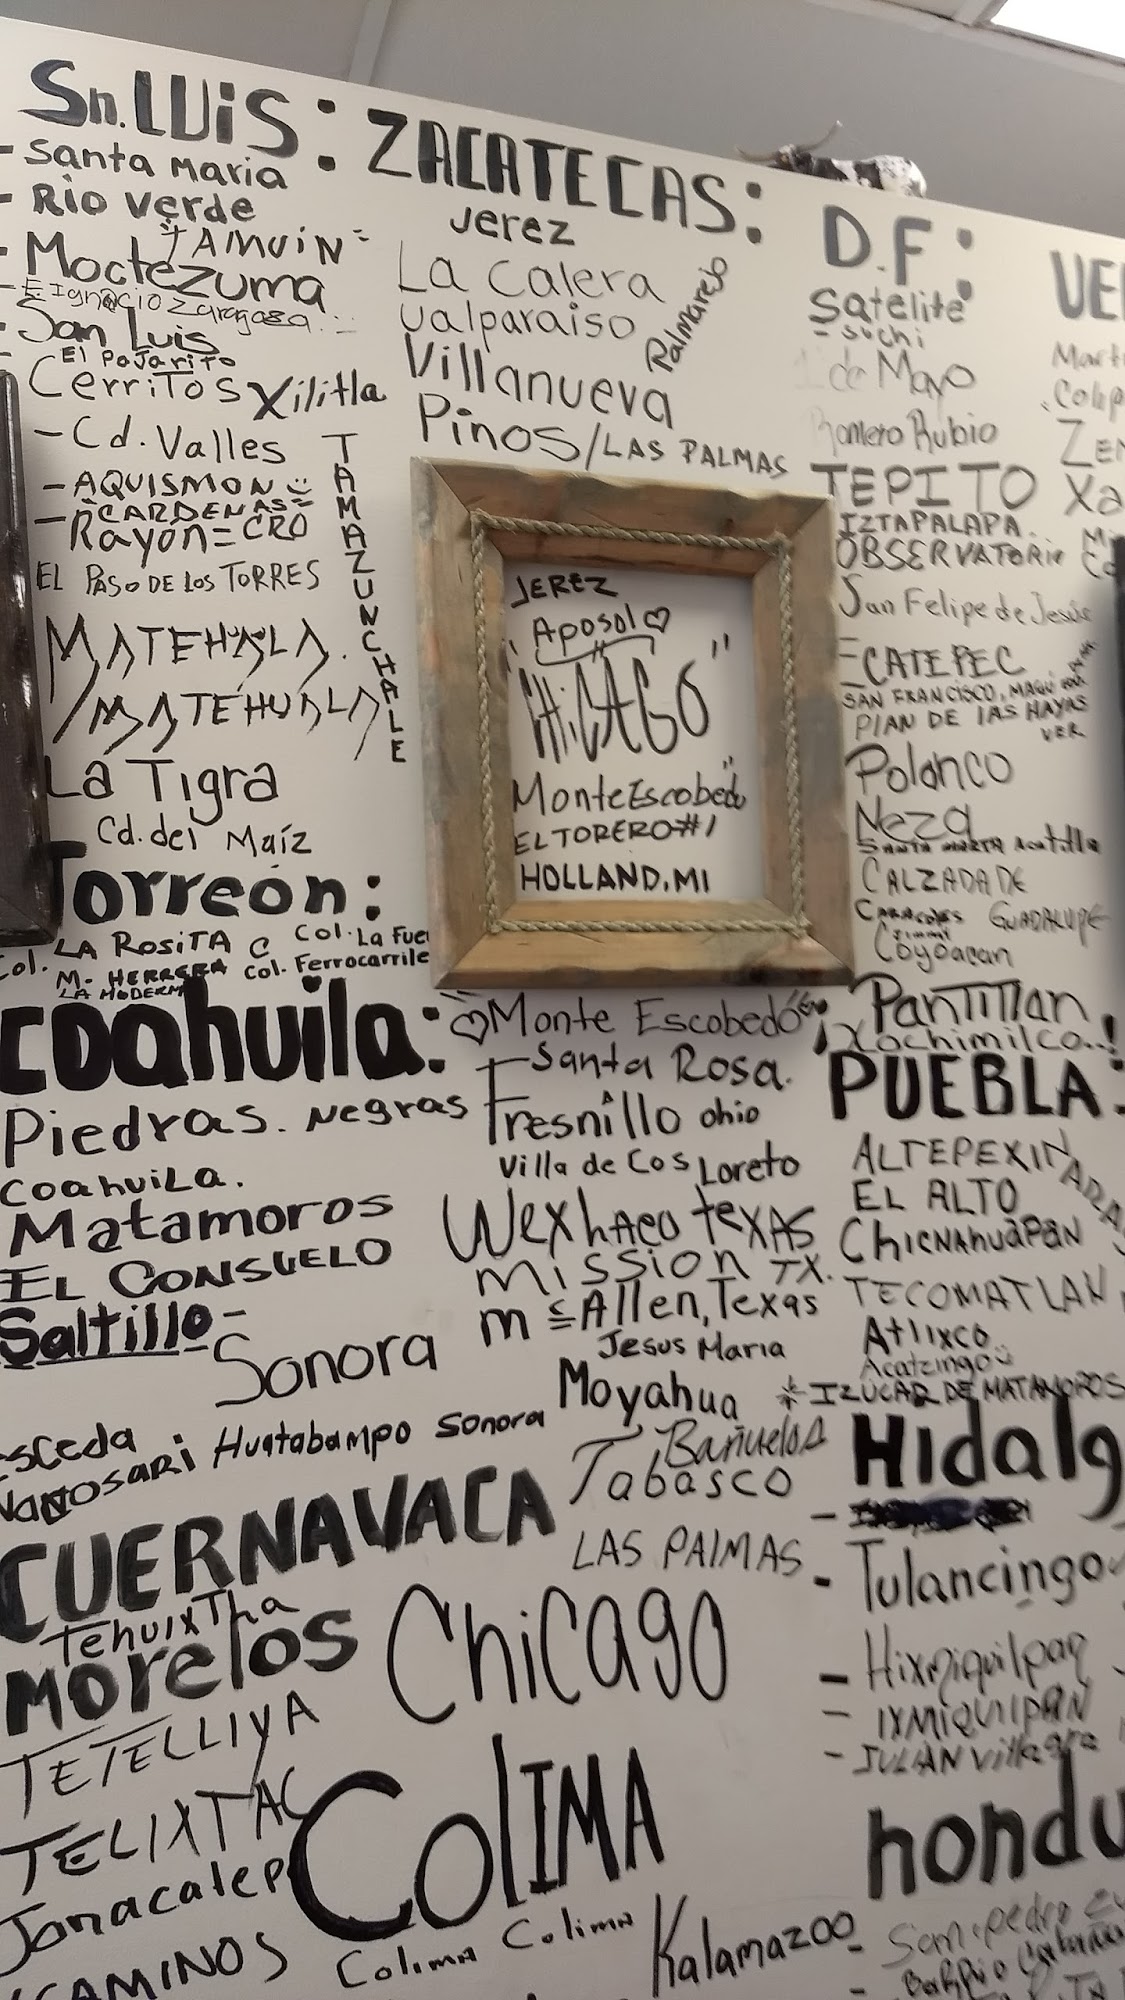 Sn. LUIS:
- Santa Maria
- Rio Verde
TAMUIN
- Moctezuma
- E. Ignacio Zaragoza
- San Luis
El Pajarito
Cerritos
Xilitla
- Cd. Valles
- AQUISMON
- CARDENAS
Rayon = CRO
EL PASO DE LOS TORRES
MATEHUALA.
MATEHUALA
TAMAZUNCHALE
La Tigra
Cd. del Maíz
Torreón:
Col. LA ROSITA
M. HERRERA
Col. La Fue
Col. Ferrocarrile
Coahuila:
Piedras. Negras
Coahuila.
Matamoros
EL CONSUELO
Saltillo-
Sonora
Huatabampo Sonora
CUERNAVACA
TehuixTha
Morelos
TETELLIYA
TELIXTAC
Jonacatep
CAMINOS
ZACATECAS:
Jerez
La Calera
Valparaiso
Palmarejo
Villanueva
Pinos/LAS PALMAS
JEREZ
Aposol
"CHiCAGO"
Monte Escobedo
EL TORERO #1
HOLLAND.MI
Monte Escobedo
Santa Rosa.
Fresnillo ohio
Villa de Cos Loreto
Wexhaco texas
Mission TX.
Allen, Texas
Jesus Maria
Moyahua
Bañuelos
Tabasco
LAS PALMAS
Chicago
ColIMA
Colima Colima
Kalamazoo
D.F:
Satelite
- Sochi
1 de Mayo
Romero Rubio
TEPITO
IZTAPALAPA.
OBSERVATORIO
San Felipe de Jesús
ECATEPEC
SAN FRANCISCO,
PLAN DE LAS HAYAS
VER
Polanco
Neza
SANTA MARTA Acatitla
CALZADA DE
GUADALUPE
Coyoacan
PanTiTlan
¡Xochimilco..!
PUEBLA:
ALTEPEXI
EL ALTO
ChiGNAhuapan
TECOMATLAN
Atlixco
Acatzingo
* IZÚCAR DE MATAMOROS
Hidalg
- Tulancingo
- Hixmiquilpan
- IXMIQUILPAN
- JULIAN Villagra
hondu
- San pedro
VE